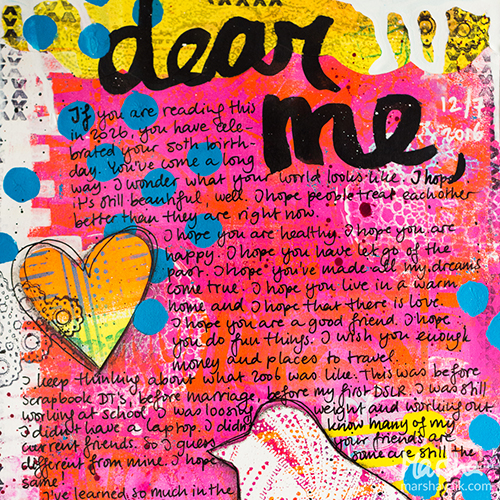 dear
me,
12/7
2016
If you are reading this
in 2026, you have cele-
brated your 50th birth-
day. You've come a long
way. I wonder what your world looks like. I hope
it's still beautiful, well. I hope people treat each other
better than they are right now.
I hope you are healthy. I hope you are
happy. I hope you have let go of the
past. I hope you've made all my dreams
come true. I hope you live in a warm
home and I hope that there is love.
I hope you are a good friend. I hope
you do fun things. I wish you enough
money and places to travel.
I keep thinking about what 2006 was like. This was before
scrapbook DT's, before marriage, before my first DSLR. I was still
working at school. I was loosing weight and working out.
I didn't have a laptop. I didn't know many of my
current friends. So I guess your friends are
different from mine. I hope some are still the
same!
I've learned so much in the
marshavalk.com